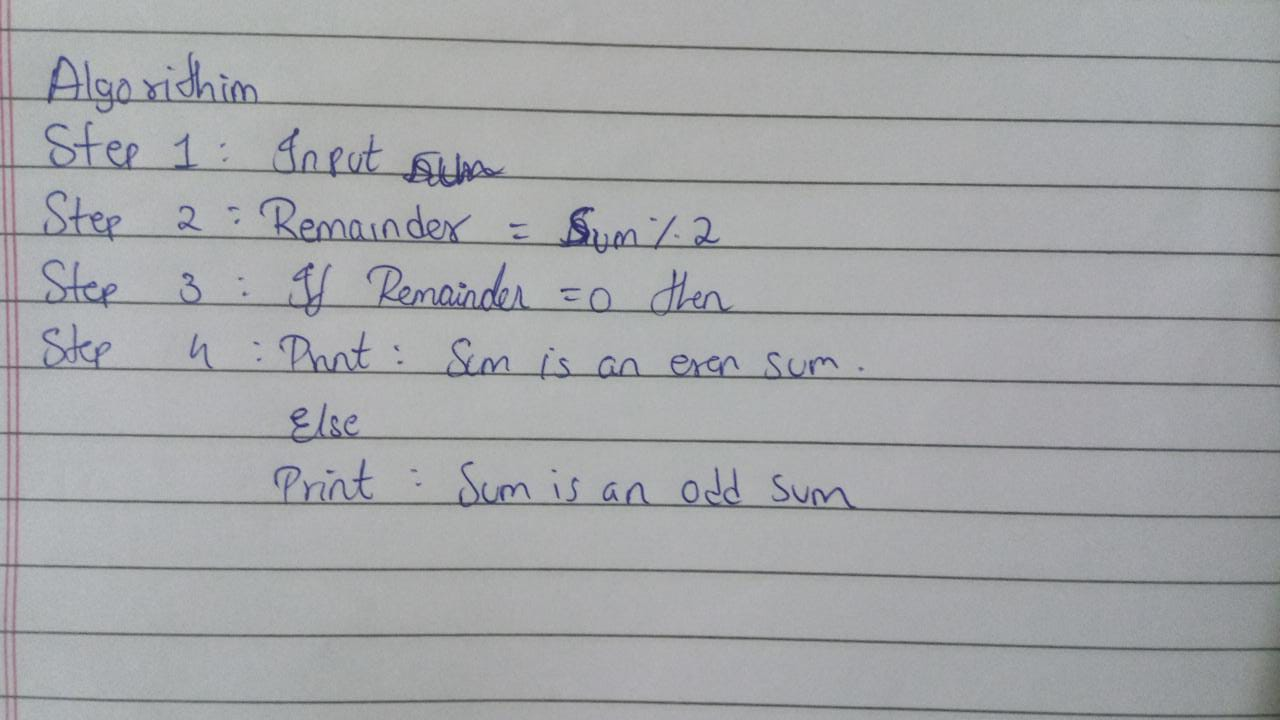 Algorithim
Step 1 : Input Sum
Step 2 : Remainder = Sum % 2
Step 3 : If Remainder = 0 then
Step 4 : Print : Sum is an even sum.
Else
Print : Sum is an odd sum